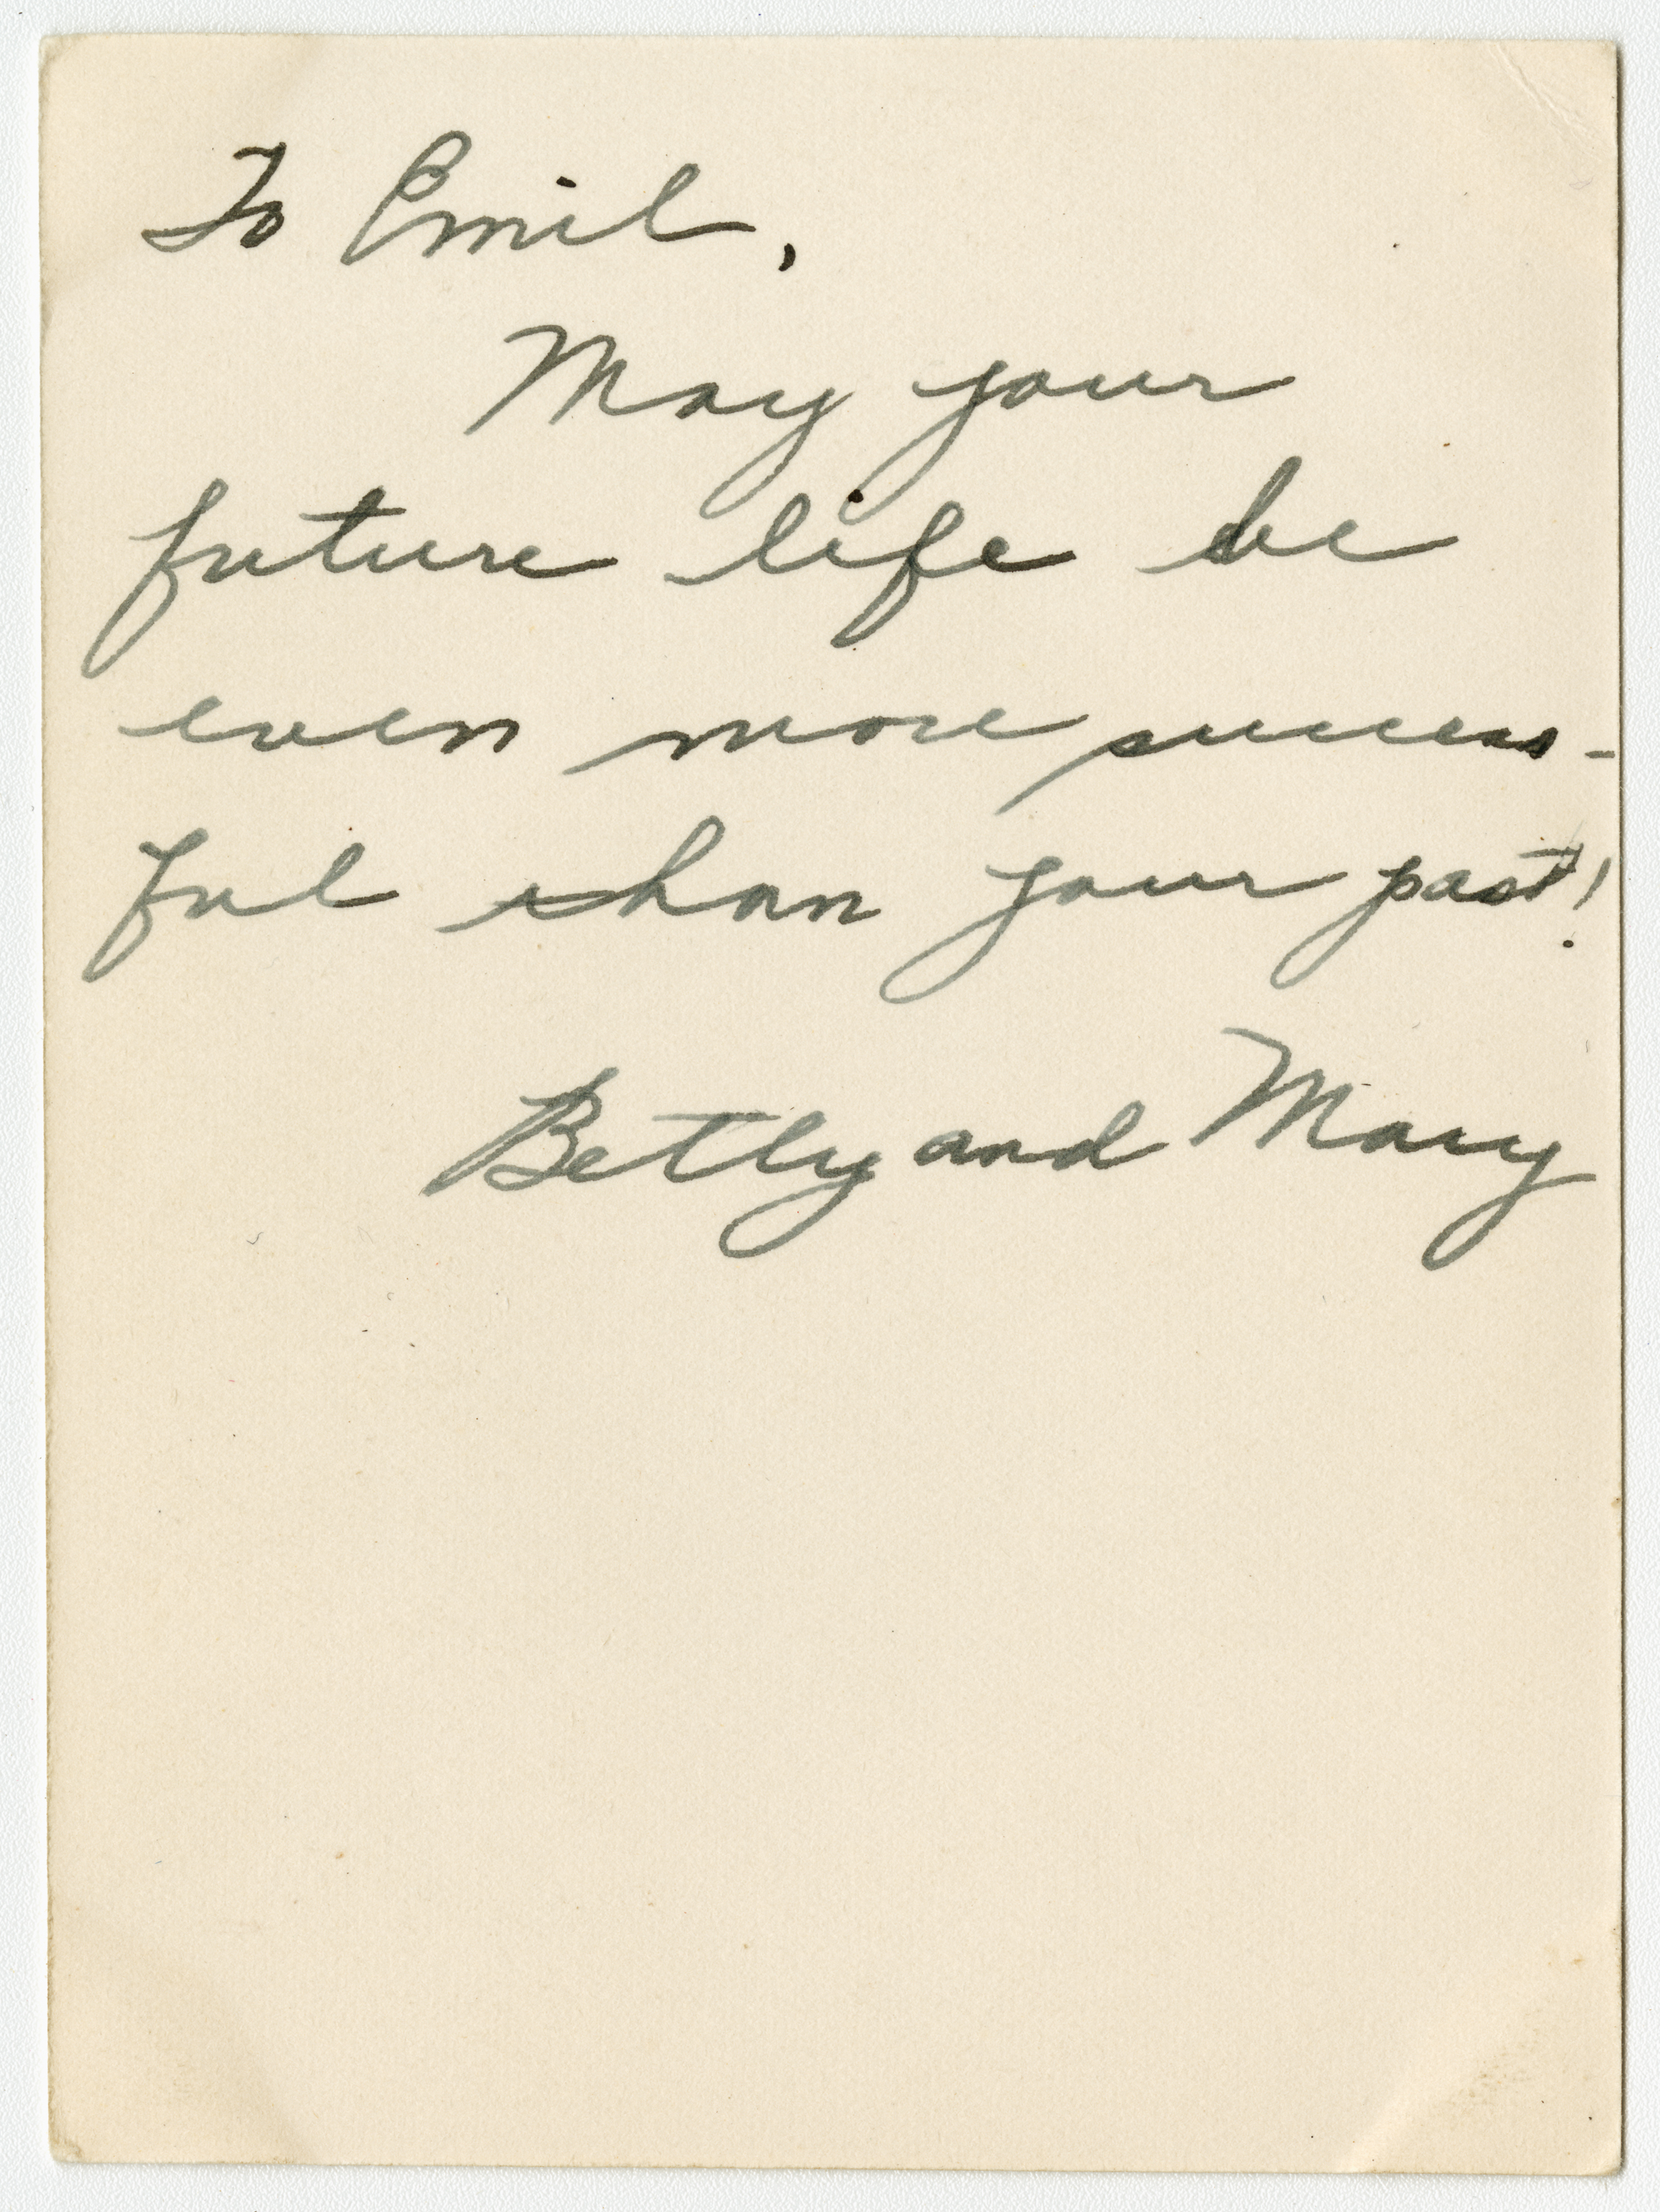 To Emil,
May your
future life be
even more success-
ful than your past!
Betty and Mary